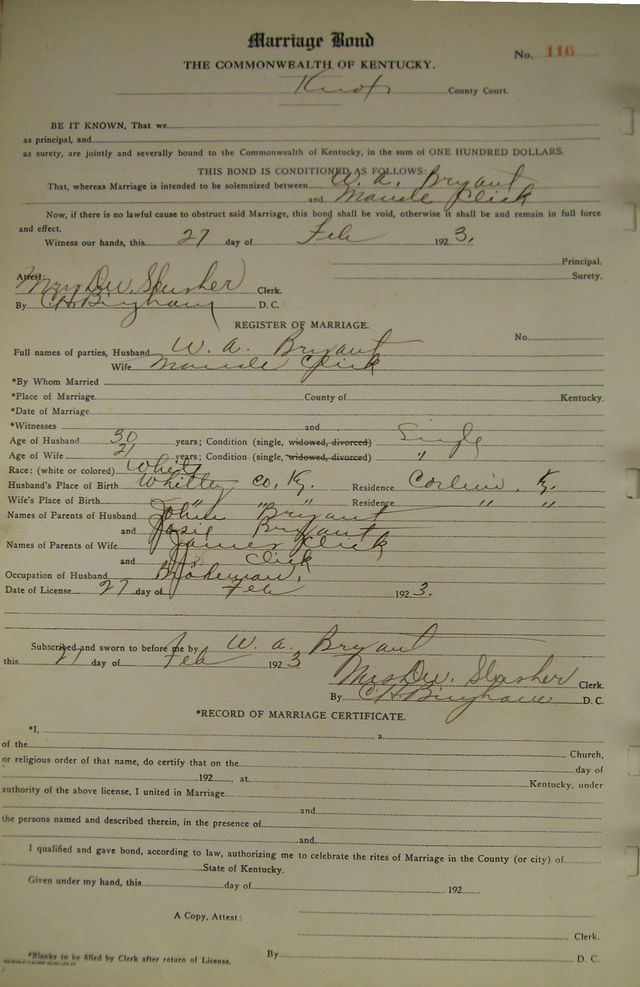 Marriage Bond
No. 116
THE COMMONWEALTH OF KENTUCKY.
Knox County Court.
BE IT KNOWN, That we
as principal, and
as surety, are jointly and severally bound to the Commonwealth of Kentucky, in the sum of ONE HUNDRED DOLLARS.
THIS BOND IS CONDITIONED AS FOLLOWS:
That, whereas Marriage is intended to be solemnized between W. A. Bryant
and Maude Click
Now, if there is no lawful cause to obstruct said Marriage, this bond shall be void, otherwise it shall be and remain in full force
and effect.
Witness our hands, this 27 day of Feb 1923.
Principal.
Attest: Surety.
Mrs. D. W. Slusher Clerk.
By C H Bingham D. C.
REGISTER OF MARRIAGE.
No.
Full names of parties, Husband W. A. Bryant
Wife Maude Click
*By Whom Married
*Place of Marriage County of Kentucky.
*Date of Marriage
*Witnesses and
Age of Husband 30 years; Condition (single, widowed, divorced) Single
Age of Wife 21 years; Condition (single, widowed, divorced) "
Race: (white or colored) White
Husband's Place of Birth Whitley Co, Ky. Residence Corbin, Ky.
Wife's Place of Birth " " " Residence " "
Names of Parents of Husband John Bryant
and Josie Bryant
Names of Parents of Wife James Click
and Click
Occupation of Husband Brakeman.
Date of License 27 day of Feb 1923.
Subscribed and sworn to before me by W. A. Bryant
this 27 day of Feb 1923
Mrs. D. W. Slusher Clerk.
By C H Bingham D. C.
*RECORD OF MARRIAGE CERTIFICATE.
*I, a
of the Church,
or religious order of that name, do certify that on the day of
192 , at Kentucky, under
authority of the above license, I united in Marriage
and
the persons named and described therein, in the presence of
and
I qualified and gave bond, according to law, authorizing me to celebrate the rites of Marriage in the County (or city) of
State of Kentucky.
Given under my hand, this day of 192
A Copy, Attest:
Clerk.
*Blanks to be filled by Clerk after return of License.
By D. C.